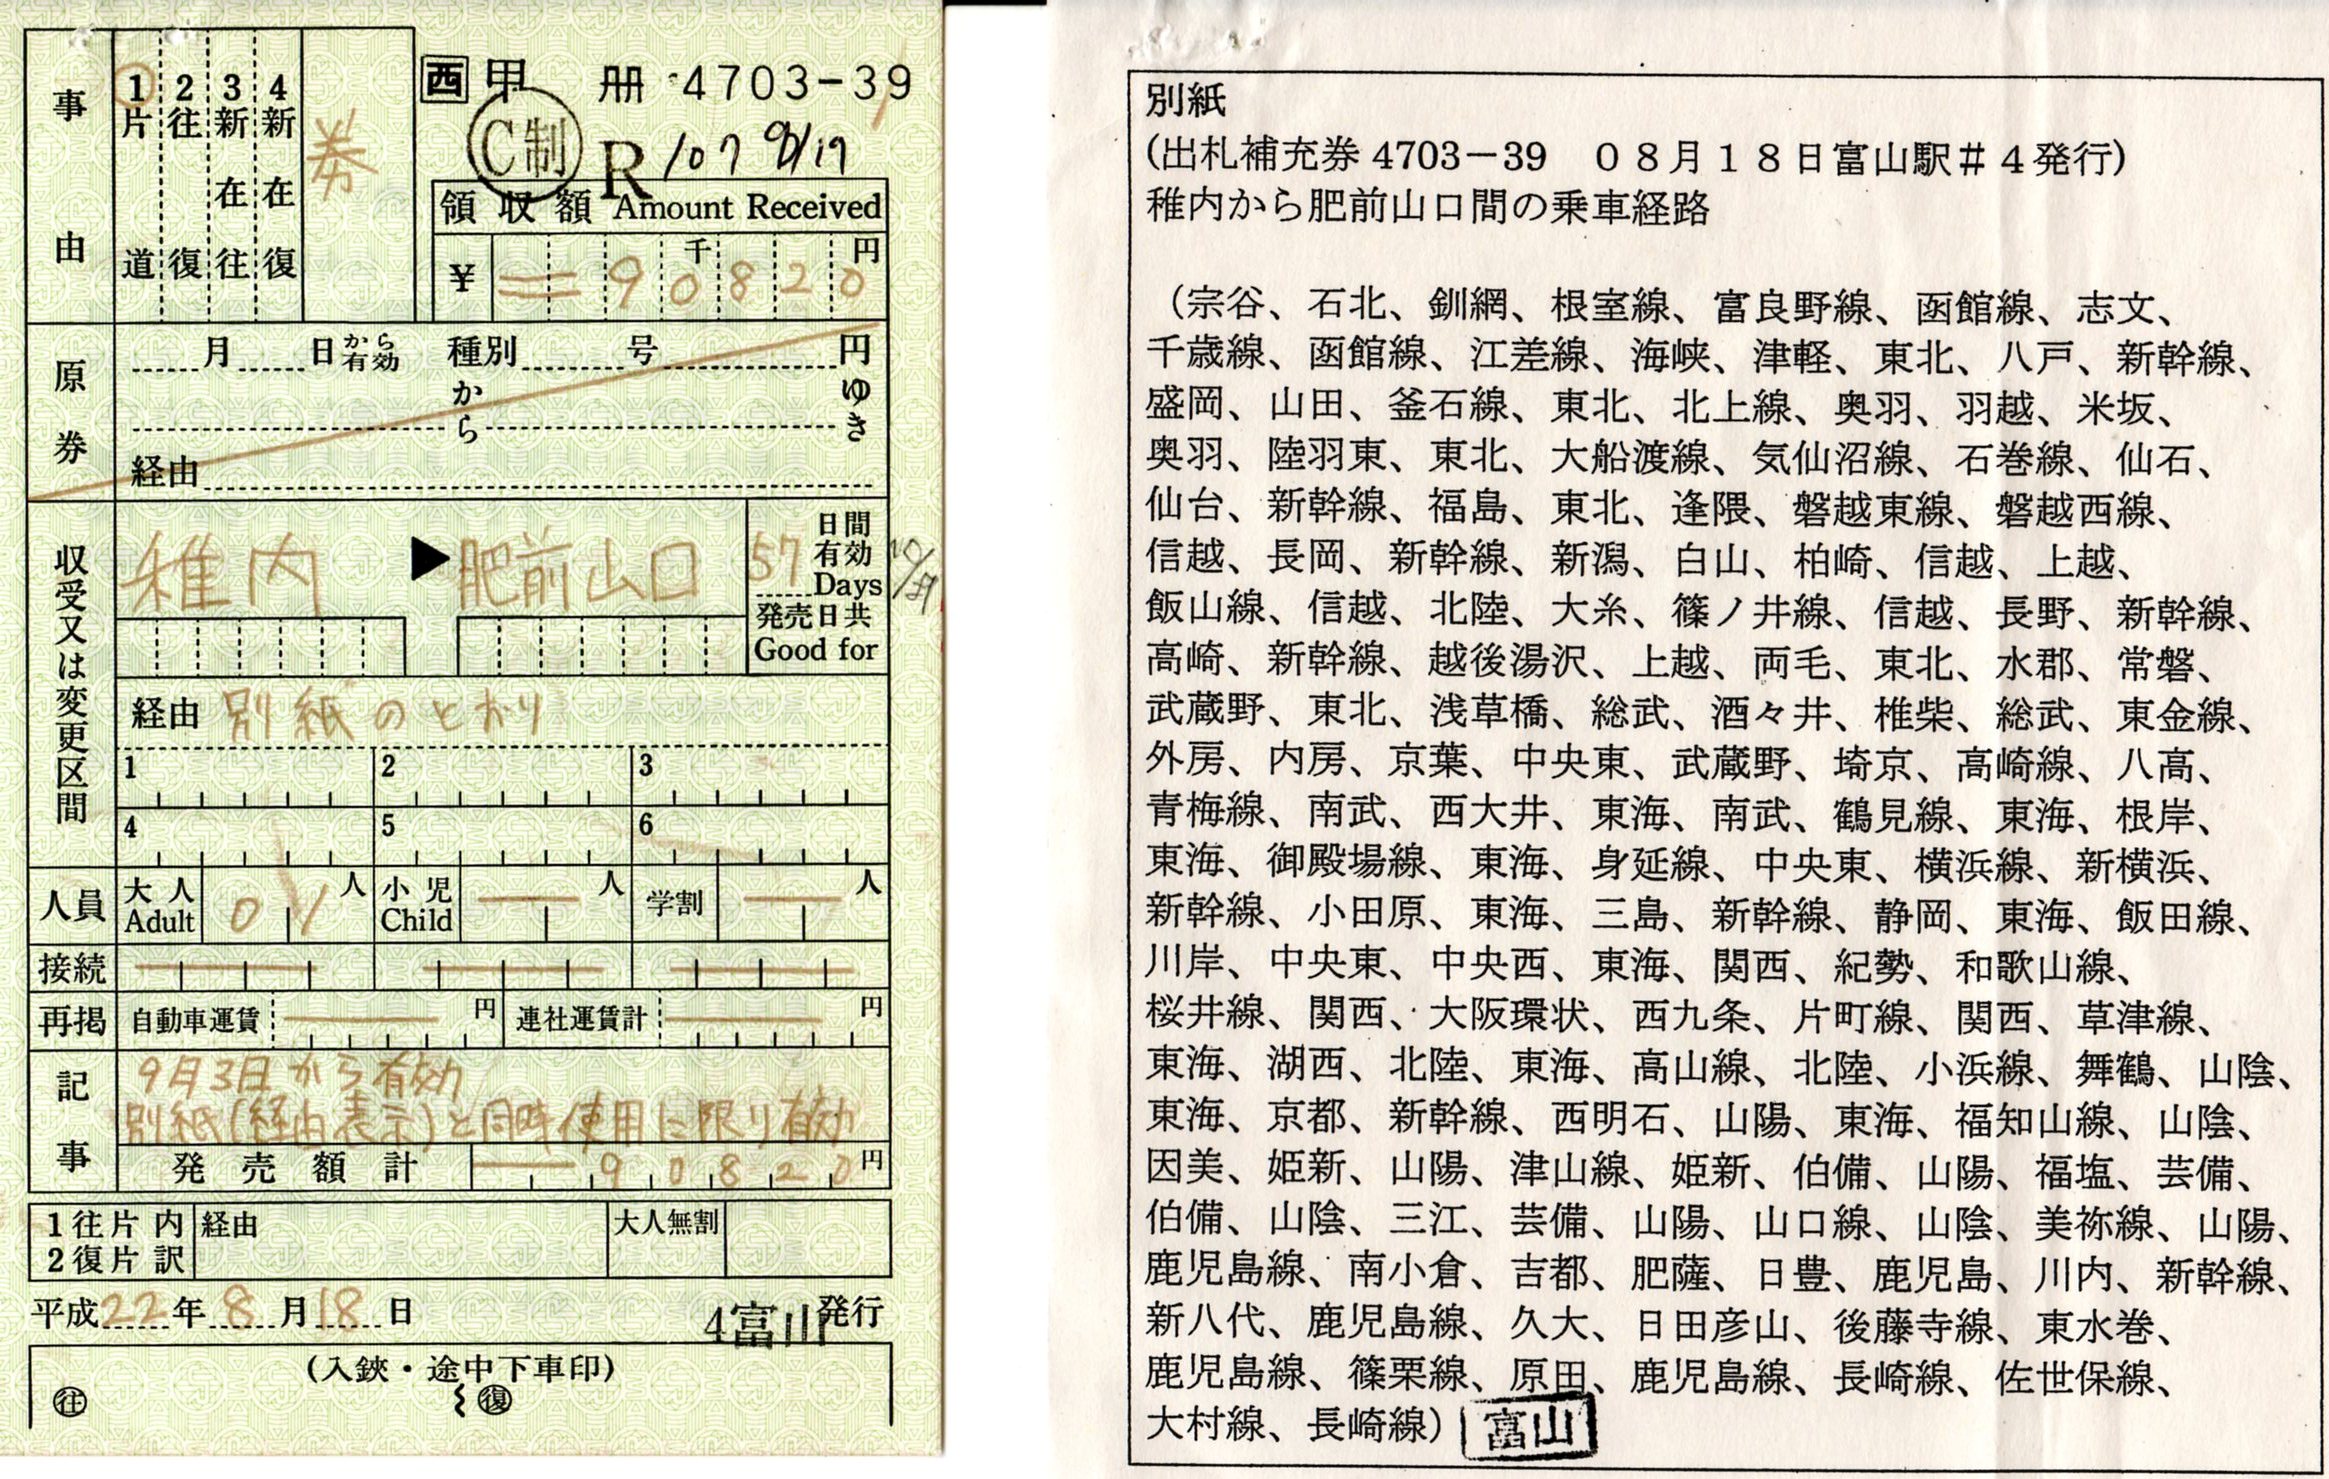 事由
1片道
2往復
3新在往
4新在復
券
西 甲 冊 4703-39
C制 R 107
領収額 Amount Received
¥ 90820 千 円
原券
月 日から有効 種別 号 円
から ゆき
経由
収受又は変更区間
稚内 ▶ 肥前山口
57 日間有効 Days
発売日共 Good for
経由 別紙のとおり
1 2 3
4 5 6
人員 大人 Adult 01人 小児 Child 人 学割 人
接続
再掲 自動車運賃 円 連社運賃計 円
記事
9月3日から有効
別紙(経由表示)と同時使用に限り有効
発売額計 90820円
1往片内 経由 大人無割
2復片訳
平成22年8月18日 4富山発行
(入鋏・途中下車印)
往 復
別紙
(出札補充券 4703-39 08月18日富山駅#4発行)
稚内から肥前山口間の乗車経路
(宗谷、石北、釧網、根室線、富良野線、函館線、志文、
千歳線、函館線、江差線、海峡、津軽、東北、八戸、新幹線、
盛岡、山田、釜石線、東北、北上線、奥羽、羽越、米坂、
奥羽、陸羽東、東北、大船渡線、気仙沼線、石巻線、仙石、
仙台、新幹線、福島、東北、逢隈、磐越東線、磐越西線、
信越、長岡、新幹線、新潟、白山、柏崎、信越、上越、
飯山線、信越、北陸、大糸、篠ノ井線、信越、長野、新幹線、
高崎、新幹線、越後湯沢、上越、両毛、東北、水郡、常磐、
武蔵野、東北、浅草橋、総武、酒々井、椎柴、総武、東金線、
外房、内房、京葉、中央東、武蔵野、埼京、高崎線、八高、
青梅線、南武、西大井、東海、南武、鶴見線、東海、根岸、
東海、御殿場線、東海、身延線、中央東、横浜線、新横浜、
新幹線、小田原、東海、三島、新幹線、静岡、東海、飯田線、
川岸、中央東、中央西、東海、関西、紀勢、和歌山線、
桜井線、関西、大阪環状、西九条、片町線、関西、草津線、
東海、湖西、北陸、東海、高山線、北陸、小浜線、舞鶴、山陰、
東海、京都、新幹線、西明石、山陽、東海、福知山線、山陰、
因美、姫新、山陽、津山線、姫新、伯備、山陽、福塩、芸備、
伯備、山陰、三江、芸備、山陽、山口線、山陰、美祢線、山陽、
鹿児島線、南小倉、吉都、肥薩、日豊、鹿児島、川内、新幹線、
新八代、鹿児島線、久大、日田彦山、後藤寺線、東水巻、
鹿児島線、篠栗線、原田、鹿児島線、長崎線、佐世保線、
大村線、長崎線) 富山